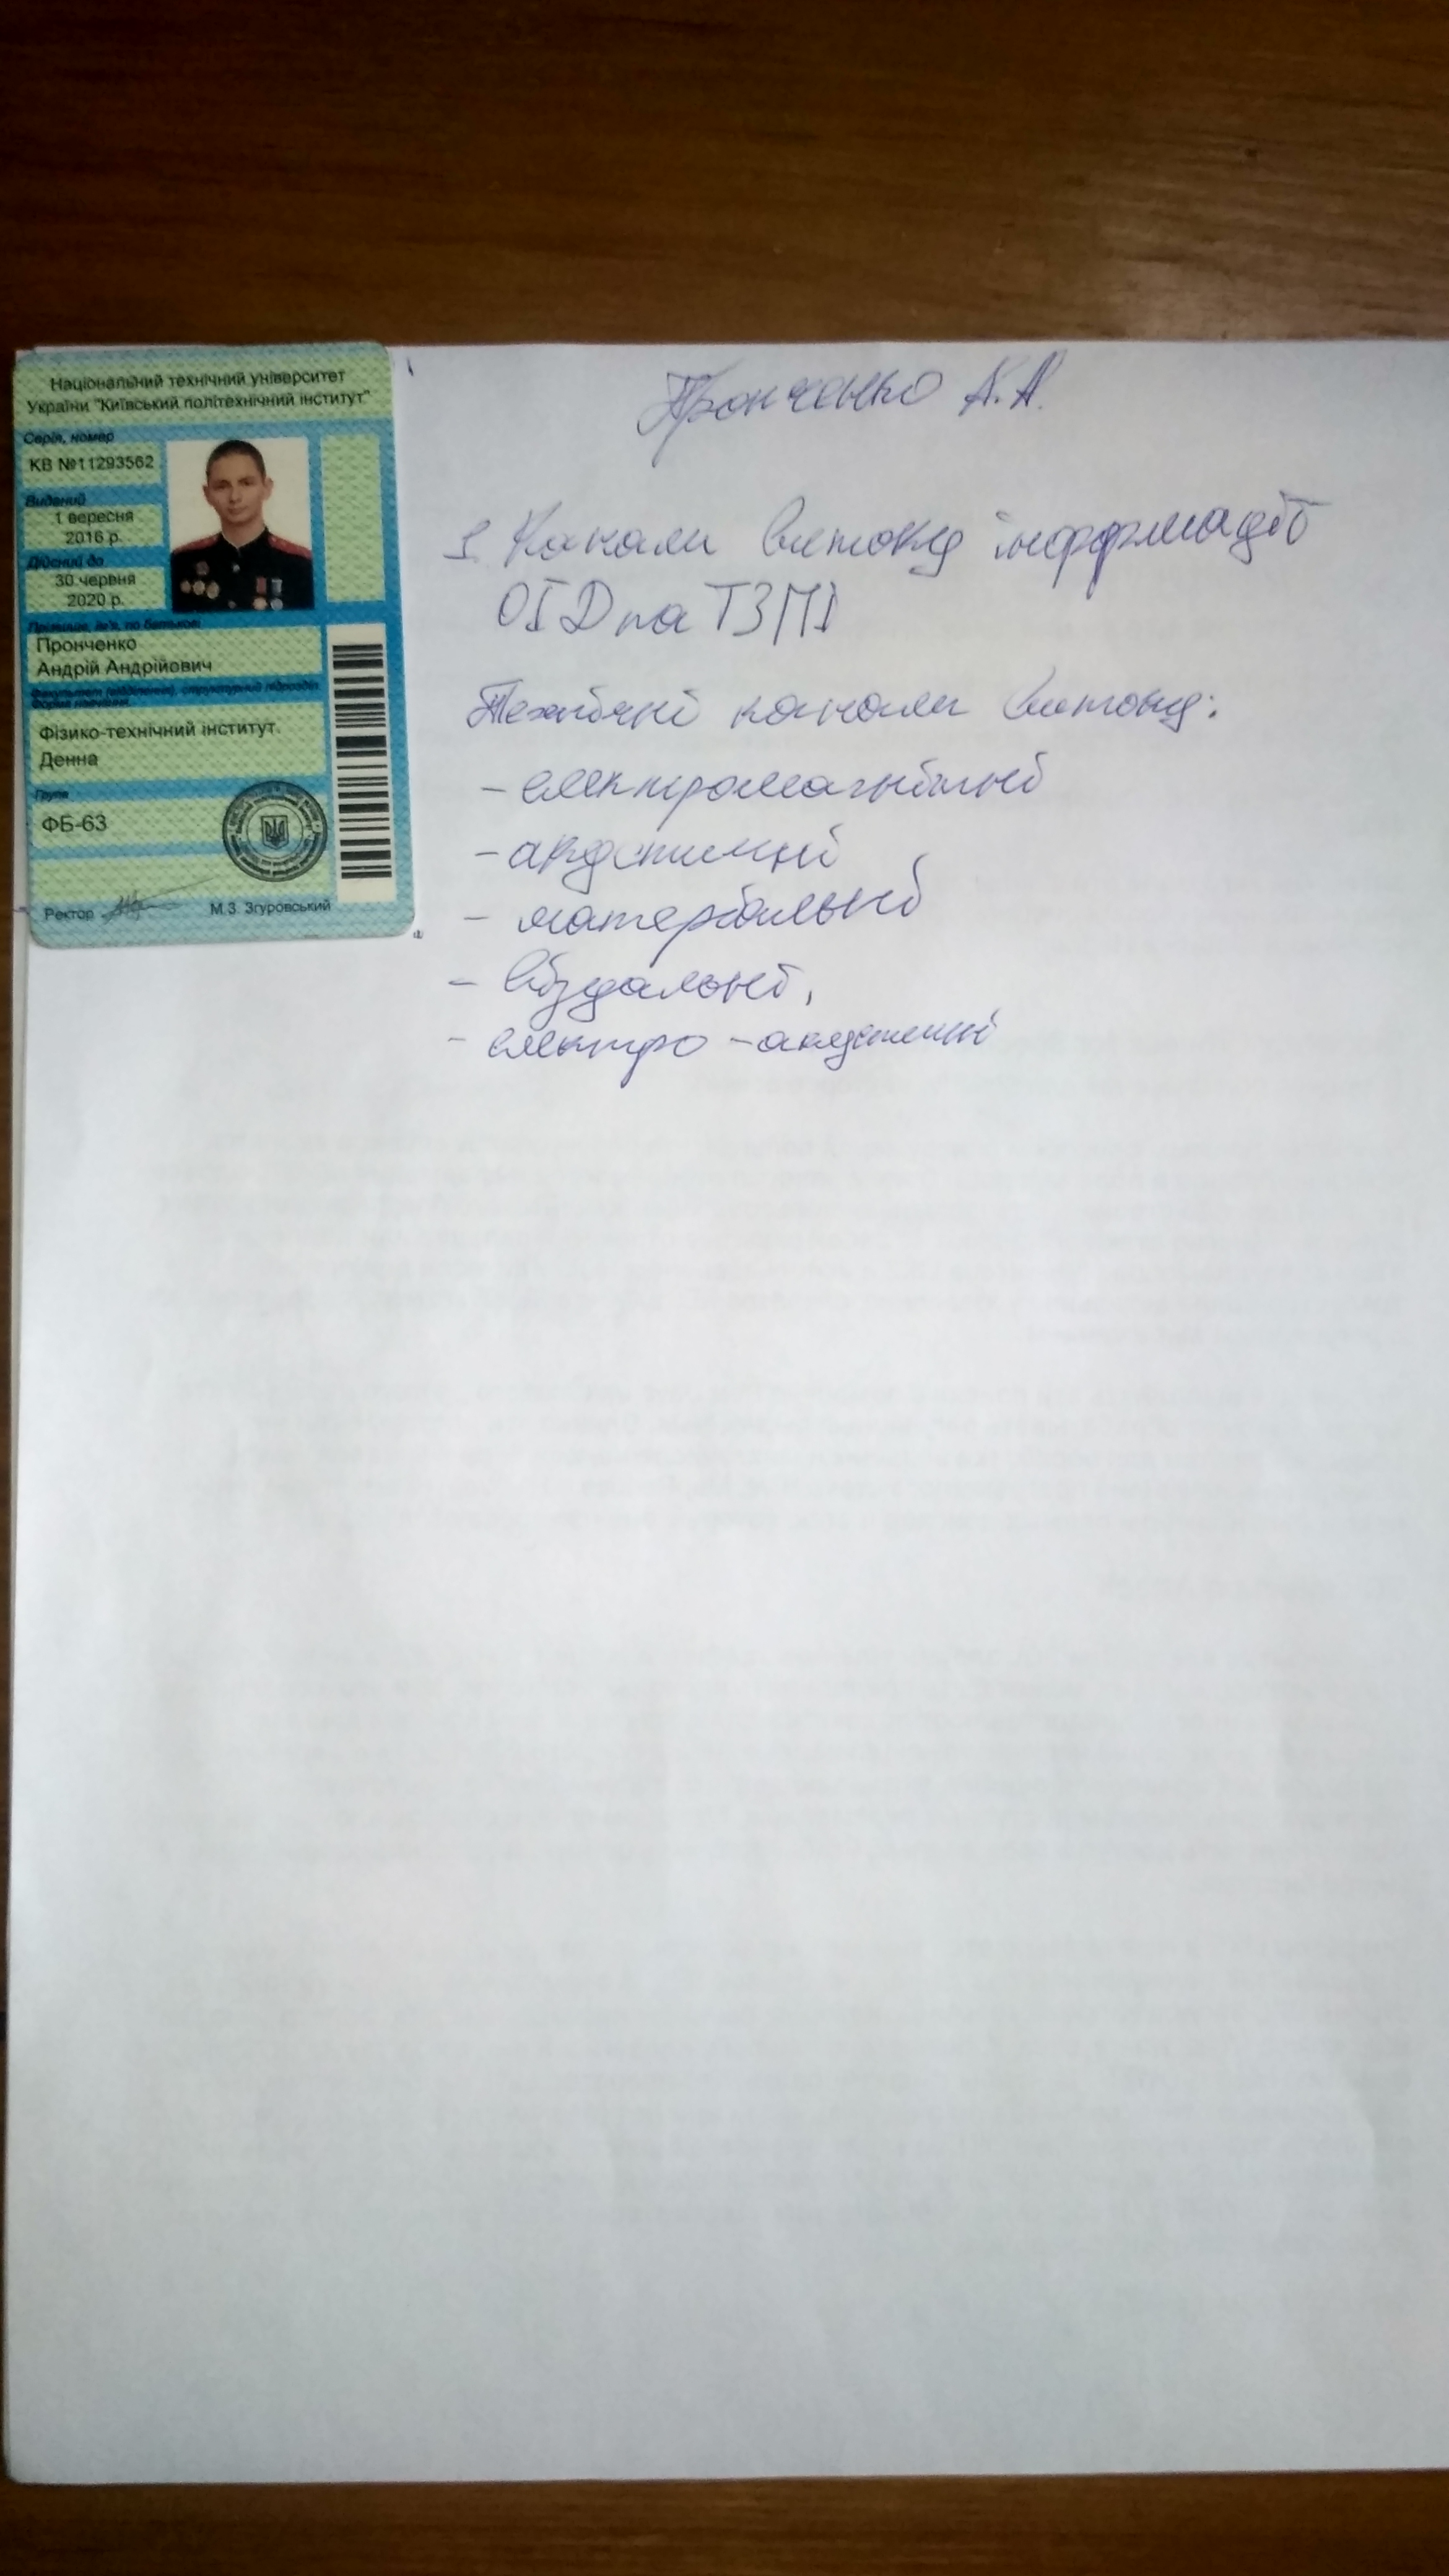 Національний технічний університет
України "Київський політехнічний інститут"
Серія, номер
КВ №11293562
Виданий
1 вересня
2016 р.
Дійсний до
30 червня
2020 р.
Прізвище, ім'я, по батькові
Пронченко
Андрій Андрійович
Факультет (відділення), структурний підрозділ.
Форма навчання.
Фізико-технічний інститут.
Денна
Група
ФБ-63
Ректор
М.З. Згуровський
Пронченко А.А.
1. Канали витоку інформації
ОІД та ТЗПІ
Технічні канали витоку:
- електромагнітні
- акустичні
- матеріальні
- візуальні,
- електро-акустичні